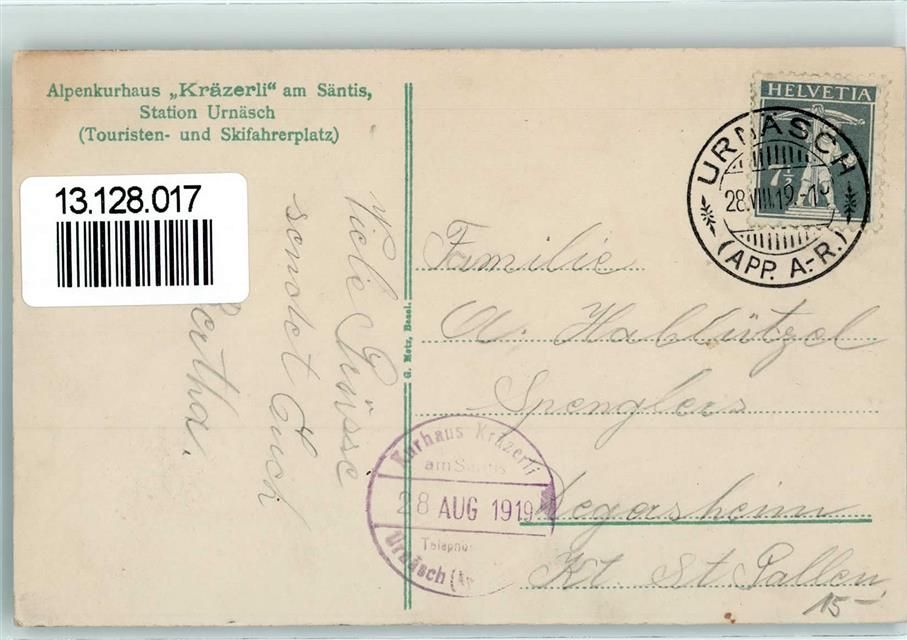 Alpenkurhaus „Kräzerli" am Säntis,
Station Urnäsch
(Touristen- und Skifahrerplatz)
13.128.017
HELVETIA
7½
URNÄSCH
28.VIII.19.-1
(APP. A.-R.)
Viele Grüsse
sendet Euch
Bertha.
G. Metz, Basel.
Familie
A. Hablützel
Spenglers
Degersheim
Kt. St Gallen
Kurhaus Kräzerli
am Säntis
28 AUG 1919
Telepho
Urnäsch (A
15-